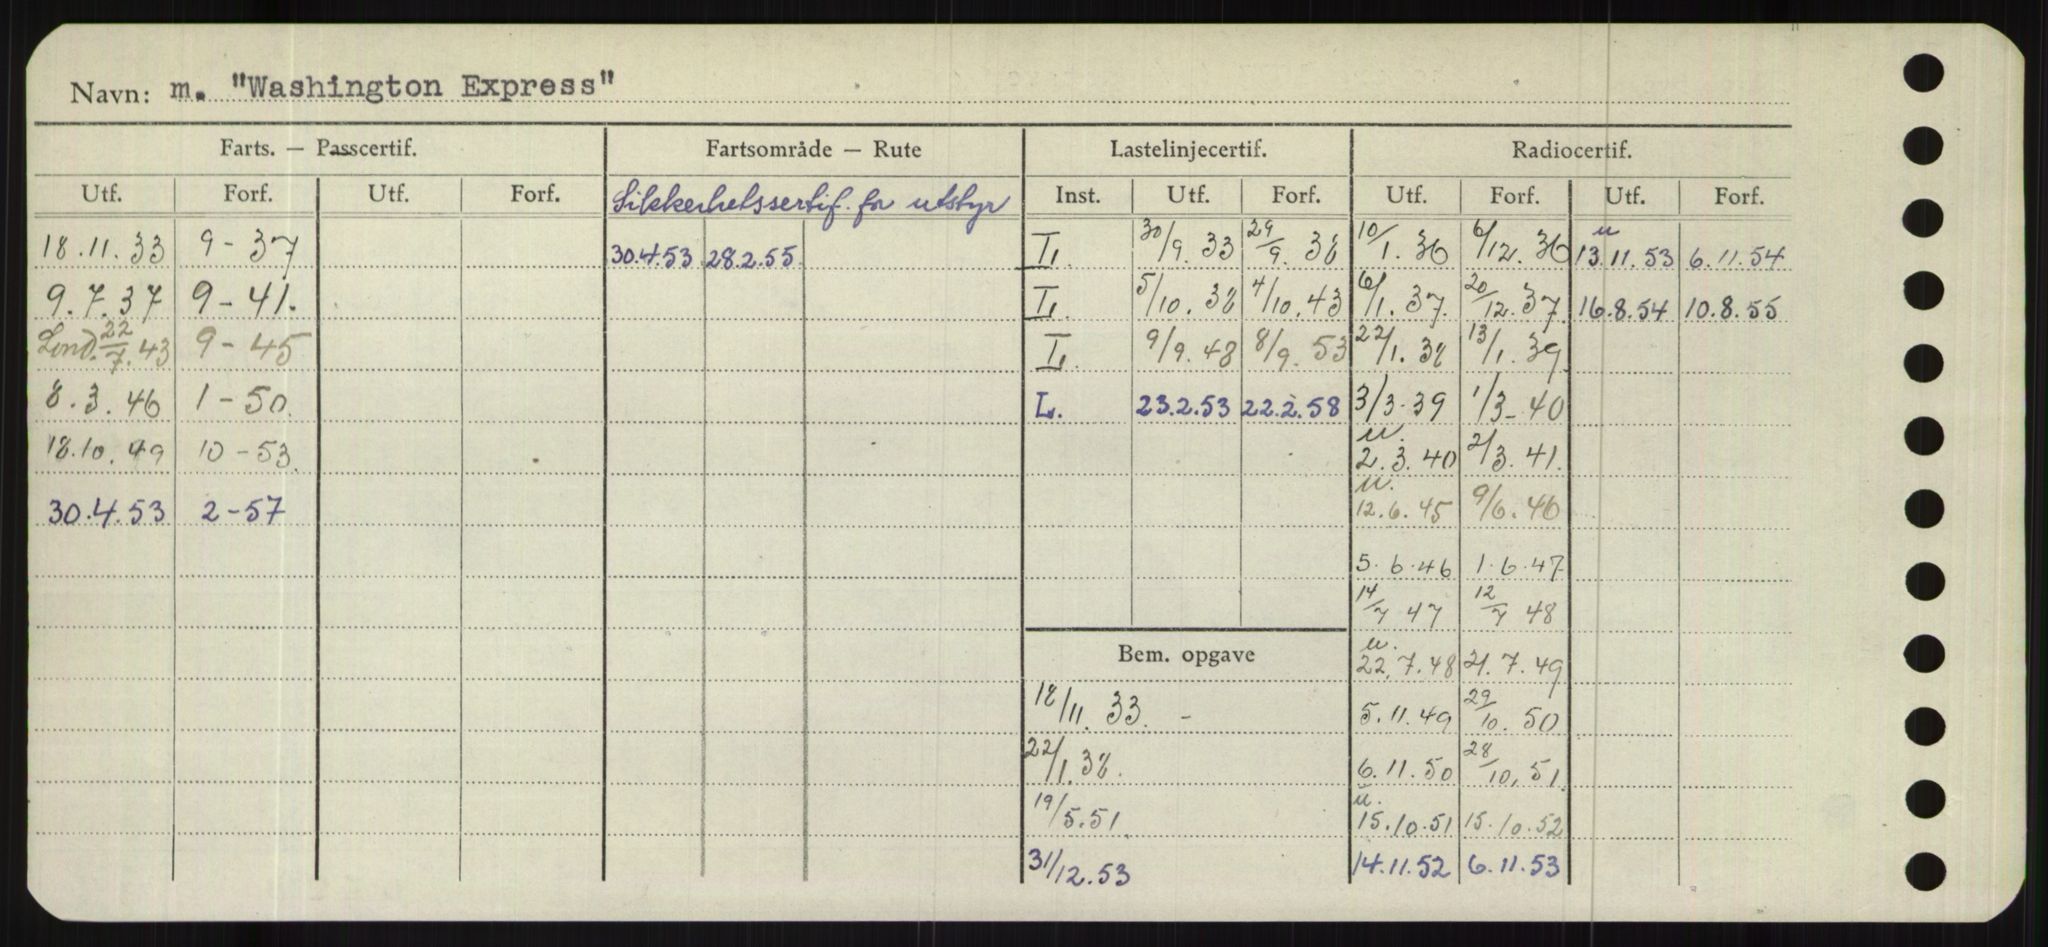 Navn: m. "Washington Express"
Farts. — Passcertif. Fartsområde — Rute Lastelinjecertif. Radiocertif.
Utf. Forf. Utf. Forf. Sikkerhetssertif. for utstyr Inst. Utf. Forf. Utf. Forf. Utf. Forf.
18.11.33 9 - 37 30.4.53 28.2.55 I. 30/9. 33 29/9. 38 10/1. 36 6/12. 36 u 13.11.53 6.11.54
9.7.37 9 - 41. I. 5/10. 38 4/10. 43 6/1. 37. 20/12. 37. 16.8.54 10.8.55
Lond. 22/7. 43 9 - 45 I. 9/9. 48 8/9. 53 22/1. 38 13/1. 39
8.3.46 1 - 50. L. 23.2.53 22.2.58 3/3-39 1/3-40
18.10.49 10 - 53. u. 2.3.40 2/3. 41.
30.4.53 2 - 57 u. 12.6.45 9/6. 46
5.6.46 1.6.47
14/7 47 12/7 48
Bem. opgave u. 22.7.48 21.7.49
18/11. 33. - 5.11.49 29/10. 50
22/1. 38. 6.11.50 28/10. 51
19/5.51. u. 15.10.51 15.10.52
31/12.53 14.11.52 6.11.53